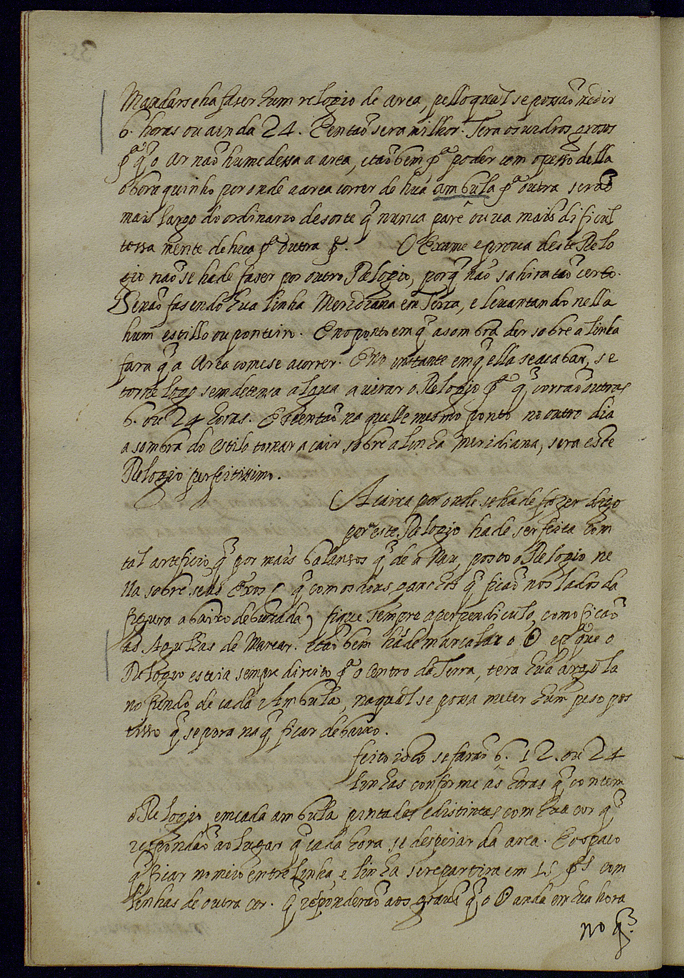 Mandarseha faser hum relogio de area, pello qual se possaõ medir
6. horas ou ainda 24. Entaõ sera milhor. Tera os vidros grossos
pª q̃ o Ar naõ humedessa a area, etaõ bem pª poder com o pezo della
oboraquinho por onde a area correr de huã ambula pª outra sera
mais largo do ordinario desorte q̃ nunca pare ou va mais dificul
tosa mente de huã pª outra p. O Exame e prova deste Relo
gio naõ se ha de faser por outro Relogio, porq̃ naõ sahira taõ certo.
Senaõ fasendo huã linha Meridiana em Terra, e levantando nella
hum estillo ou ponteiro. E no ponto em q̃ a sombra der sobre a linha
fara q̃ a Area comese acorrer. E no instante em q̃ ella se acabar, se
torne logo sem detença algũa a virar o Relogio pª q̃ corraõ outras
6. ou 24 horas. E se entaõ na quelle mesmo ponto no outro dia
a sombra do Estilo tornar a cair sobre a linha Meridiana, sera este
Relogio perfeitissimo.
A caixa por onde se ha de fazer digo
por este Relogio ha de ser feita com
tal arteficio q̃ por mais balansos q̃ dé a Nau, posto o Relogio ne
lla sobre seus Eixos, q̃ com os dous ganchos q̃ ficaõ nos lados da
figura abaixo debuxada, fique sempre aperpendiculo, como ficaõ
as Agulhas de Marear. Etaõ bem ha de mancalau o O e pª que o
Relogio esteia sempre direito pª o Centro da Terra, tera huã argola
no fundo de cada Ambula, naqual se possa meter hum peso pos
tisso q̃ se pora na q̃ ficar debaixo.
feito isto se faraõ 6. 12. ou 24
linhas conforme ás horas q̃ contem
o Relogio, em cada ambulla pintadas e distintas com huã cor q̃
respondaõ ao lugar q̃ cada hora se despeiar da area. E o espaco
q̃ ficar no meio entre linha e linha se repartira em 15 ps com
linhas de outra cor. q̃ responderaõ aos graus q̃ o O anda em huã hora
no q̃